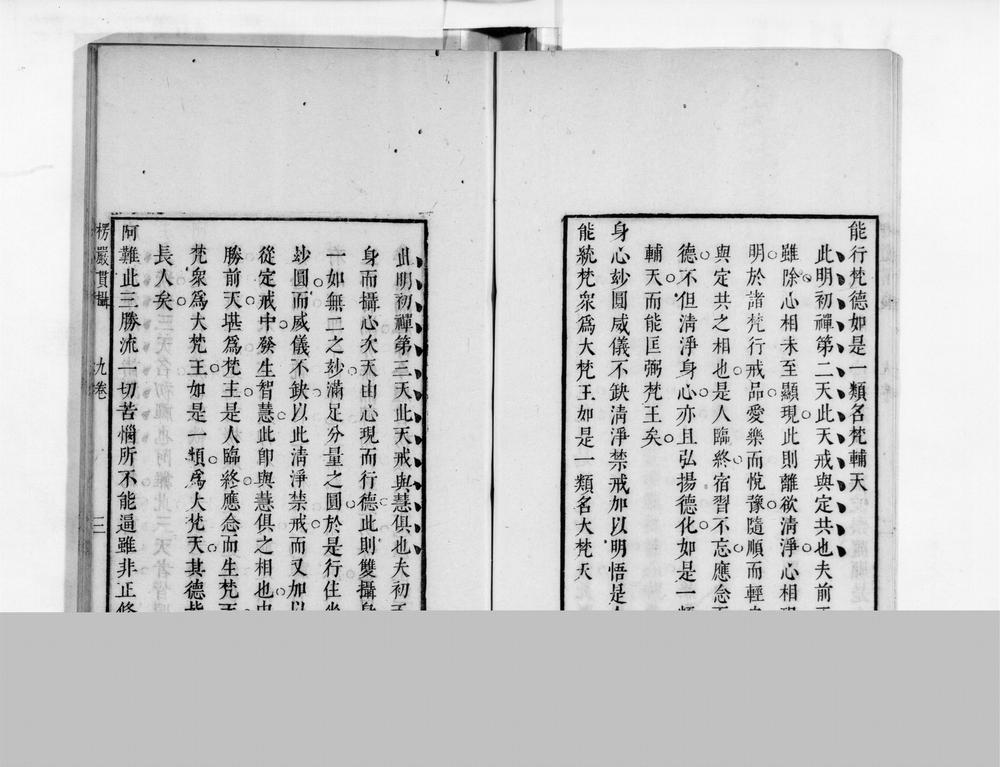 能行梵德如是一類名梵輔天
此明初禪第二天此天戒與定共也夫前
雖除心相未至顯現此則離欲清淨心相
明於諸梵行戒品愛樂而悅豫隨順而輕
與定共之相也是人臨終宿習不忘應念
德不但清淨身心亦且弘揚德化如是一類
輔天而能匡弼梵王矣
身心玅圓威儀不缺清淨禁戒加以明悟是
能統梵衆爲大梵王如是一類名大梵天
此明初禪第三天此天戒與慧俱也夫初
身而攝心次天由心現而行德此則雙攝身
一如無二之玅滿足分量之圓於是行住坐
玅圓而威儀不缺以此清淨禁戒而又加以
從定戒中發生智慧此卽與慧俱之相也
勝前天堪爲梵主是人臨終應念而生梵
梵衆爲大梵王如是一類爲大梵天其德
長人矣
阿難此三勝流一切苦惱所不能逼雖非正修
楞嚴貫攝 九卷 三